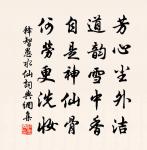 芳心尘外洁
道韵雪中香
自是神仙骨
何勞更洗妝
釋智愚水仙詞典網集